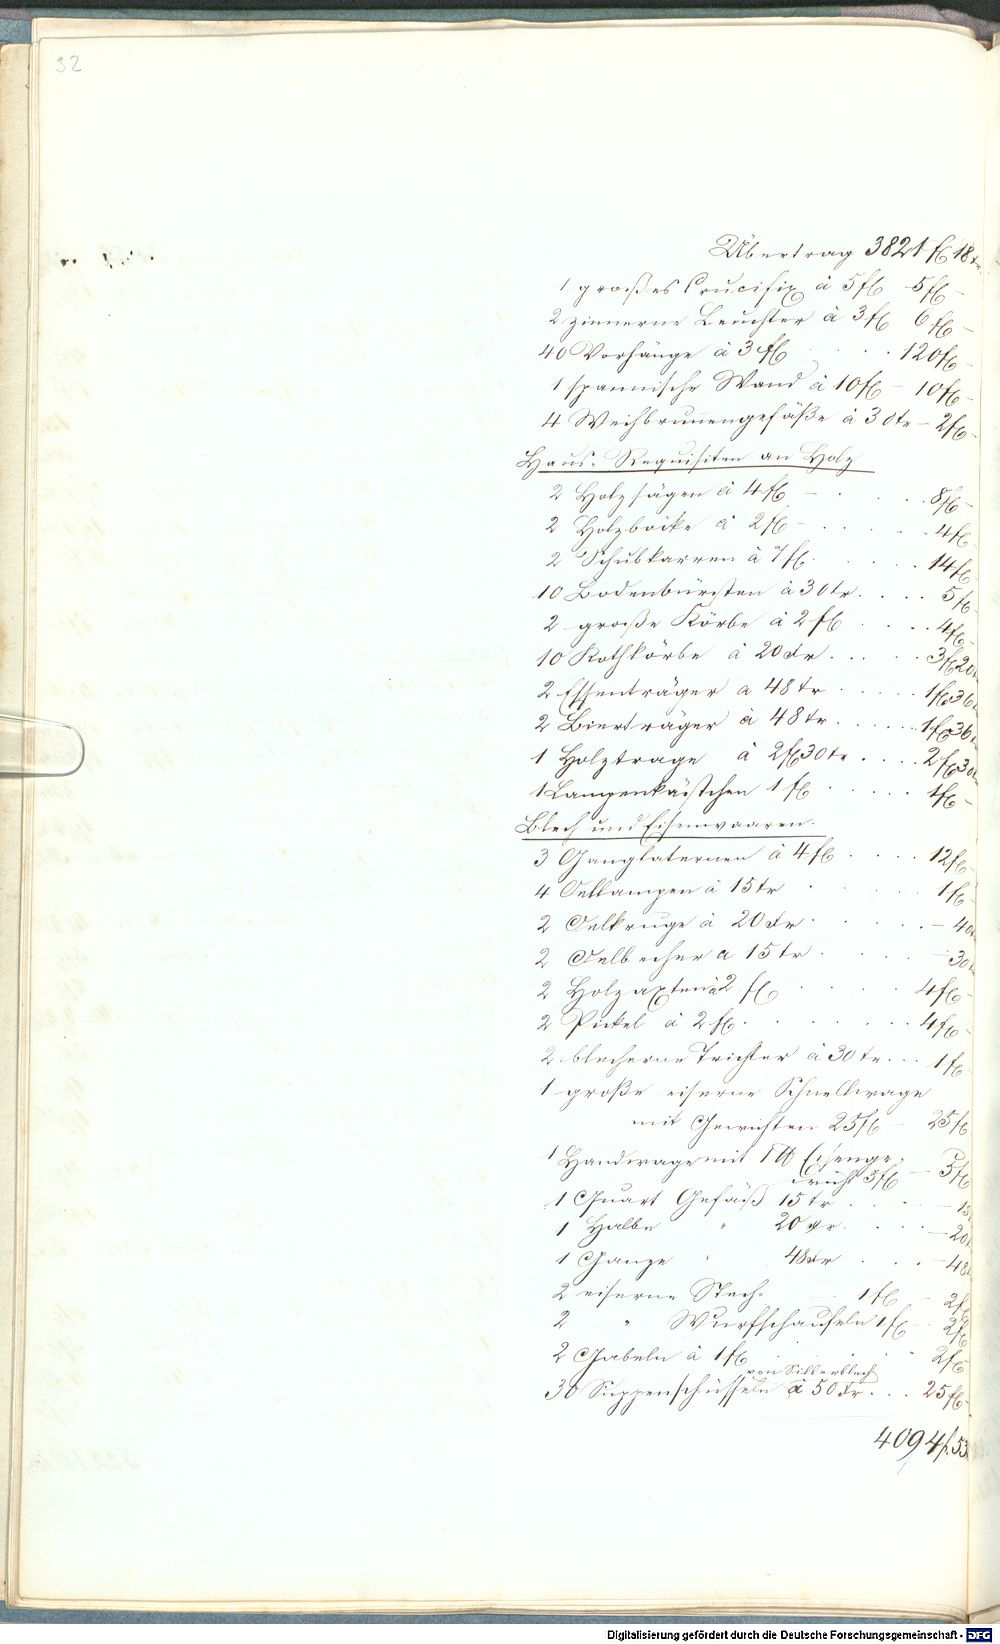 32
Übertrag 3821 fl 18 kr
1 großes Crucifix à 5 fl 5 fl –
2 zinnerne Leuchter à 3 fl 6 fl –
40 Vorhänge à 3 fl . . . 120 fl –
1 spannische Wand à 10 fl – 10 fl –
4 Weihbrunnengefäße à 30 kr – 2 fl –
Haus-Requisiten an Holz
2 Holzsägen à 4 fl – . . . 8 fl –
2 Holzböcke à 2 fl – . . . 4 fl –
2 Schubkarren à 7 fl . . . . 14 fl
10 Bodenbürsten à 30 kr . . . . 5 fl
2 große Körbe à 2 fl . . . . 4 fl –
10 Kothkörbe à 20 kr . . . . 3 fl 20 kr
2 Essenträger a 48 kr . . . . . 1 fl 36
2 Bierträger à 48 kr . . . . . 1 fl 36
1 Holztrage à 2 fl 30 kr . . . . 2 fl 30
1 Lampenkästchen 1 fl . . . . . 1 fl –
Blech und Eisenwaaren.
3 Ganglaternen à 4 fl . . . . 12 fl
4 Oellampen à 15 kr . . . . 1 fl
2 Oelkruge à 20 kr . . . . – 40
2 Oelbecher a 15 kr . . . . – 30
2 Holzaxten à 2 fl . . . . 4 fl –
2 Pickel à 2 fl . . . . . 4 fl –
2 blecherne Trichter à 30 kr . . . 1 fl
1 große eiserne Schnellwage
mit Gewichten 25 fl – 25 fl
1 Handwage mit 1 ℔ Eisenge-
wicht 5 fl – 5 fl
1 Quart Gefäß 15 kr . . . – 15
1 Halbe " 20 kr . . . . – 20
1 Ganze " 48 kr . . . – 48
2 eiserne Stech- – 1 fl – 2 fl
2 " Wurfschaufeln 1 fl – 2 fl
2 Gabeln à 1 fl . . . 2 fl
von Silberblech
30 Suppenschüsseln à 50 kr . . . 25 fl –
4094 fl 53
Digitalisierung gefördert durch die Deutsche Forschungsgemeinschaft - DFG